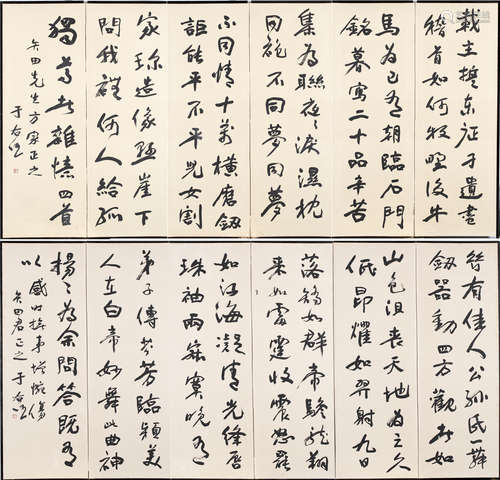 載主換東征孑遺盡
稽首如何牧野後牛
馬為已有朝臨石門
銘暮寫二十品辛苦
集為聯夜〻淚濕枕
同龕不同夢同夢
不同情十萬橫磨劔
詎能平不平兒女割
家珍造像懸崖下
問我維何人給孤
獨長者雜憶四首
矢田先生方家正之
于右任
昔有佳人公孫氏一舞
劔器動四方觀者如
山色沮喪天地為之久
低昂㸌如羿射九日
落矯如群帝驂龍翔
來如雷霆收震怒罷
如江海凝清光絳唇
珠袖兩寂寞晚有
弟子傳芬芳臨潁美
人在白帝妙舞此曲神
揚〻為余問答既有
以感時撫事增惋傷
矢田君正之于右任